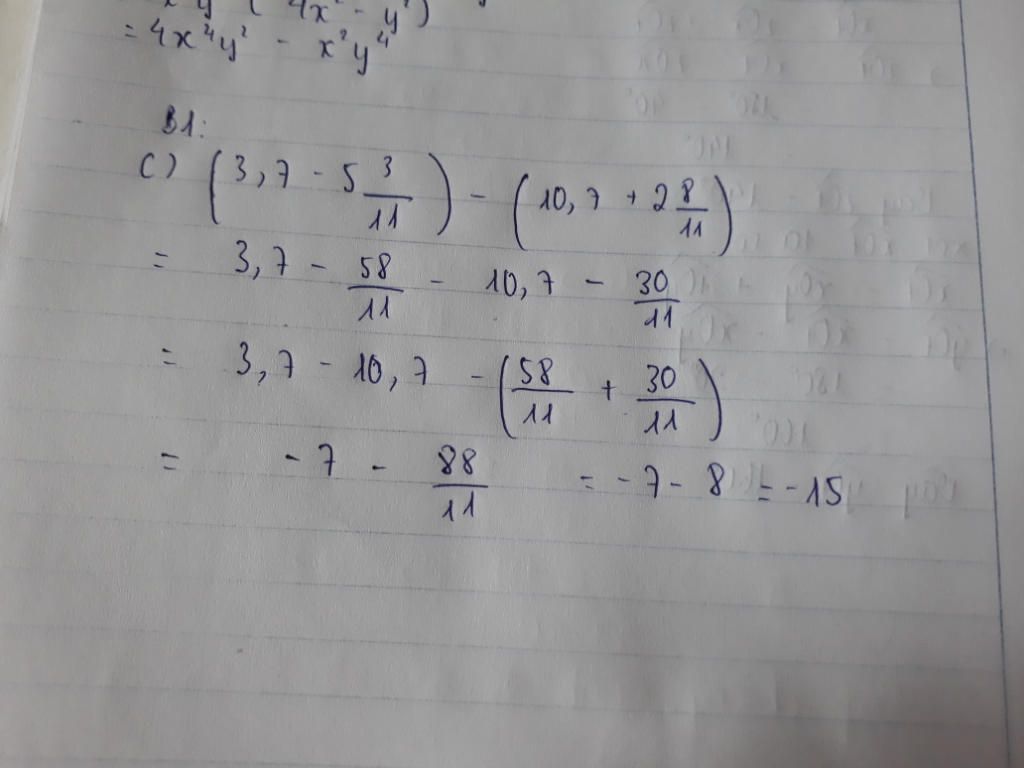 y ( 4x² - y²)
= 4x⁴y² - x²y⁴
B1:
C) (3,7 - 5 3/11) - (10,7 + 2 8/11)
= 3,7 - 58/11 - 10,7 - 30/11
= 3,7 - 10,7 - (58/11 + 30/11)
= -7 - 88/11 = -7 - 8 = -15